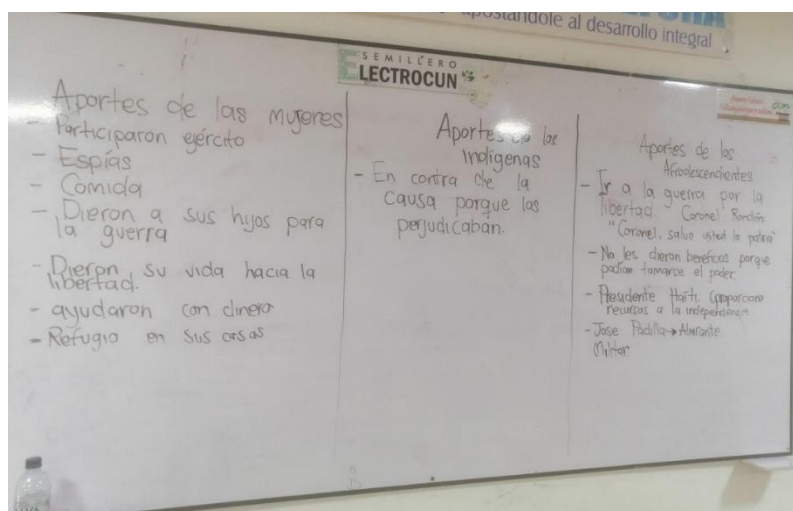 apostándole al desarrollo integral
SEMILLERO
ELECTROCUN
Aportes de las mujeres
- Participaron ejército
- Espías
- Comida
- Dieron a sus hijos para
la guerra
- Dieron su vida hacia la
libertad.
- ayudaron con dinero
- Refugio en sus casas
Aportes de las
Indígenas
- En contra de la
causa porque las
perjudicaban.
Aportes de los
Afrodescendientes
- Ir a la guerra por la
libertad. Coronel Rondón.
"Coronel, salve usted la patria"
- No les dieron beneficios porque
podían tomarse el poder.
- Presidente Haití.
recursos a la independencia
- Jose Padilla → Almirante
Militar